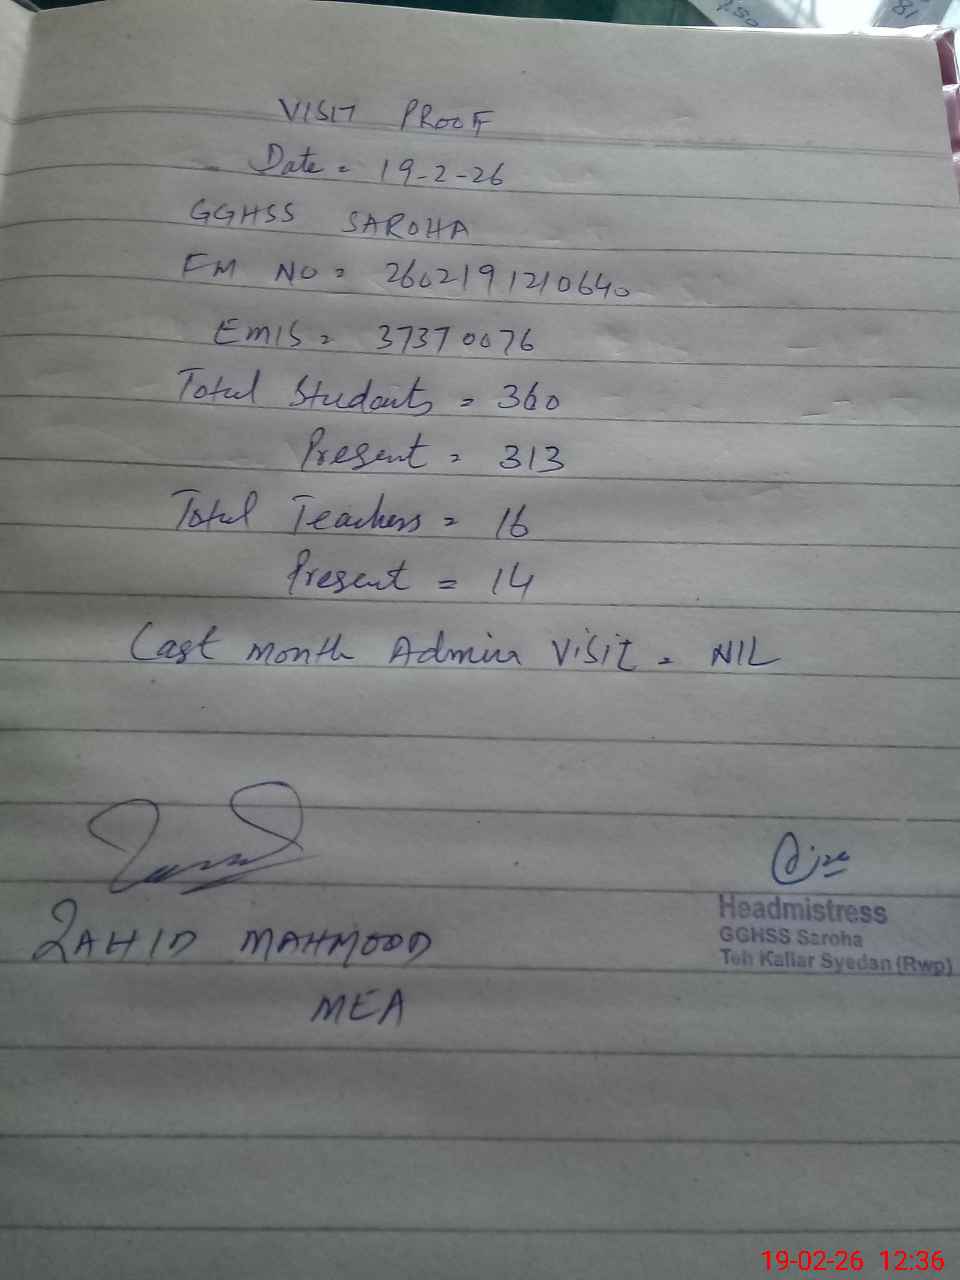 VISIT PROOF
Date = 19-2-26
GGHSS SAROHA
FM NO = 2602191210640
EMIS = 37370076
Total Students = 360
Present = 313
Total Teachers = 16
Present = 14
Last month Admin Visit = NIL
ZAHID MAHMOOD
MEA
Headmistress
GGHSS Saroha
Teh Kallar Syedan (Rwp)
19-02-26 12:36